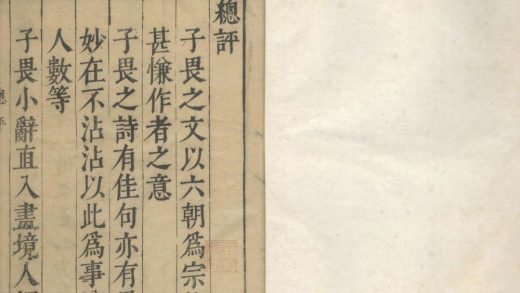 總評
子畏之文以六朝爲宗
甚慊作者之意
子畏之詩有佳句亦有
妙在不沾沾以此爲事
人數等
子畏小辭直入畫境人